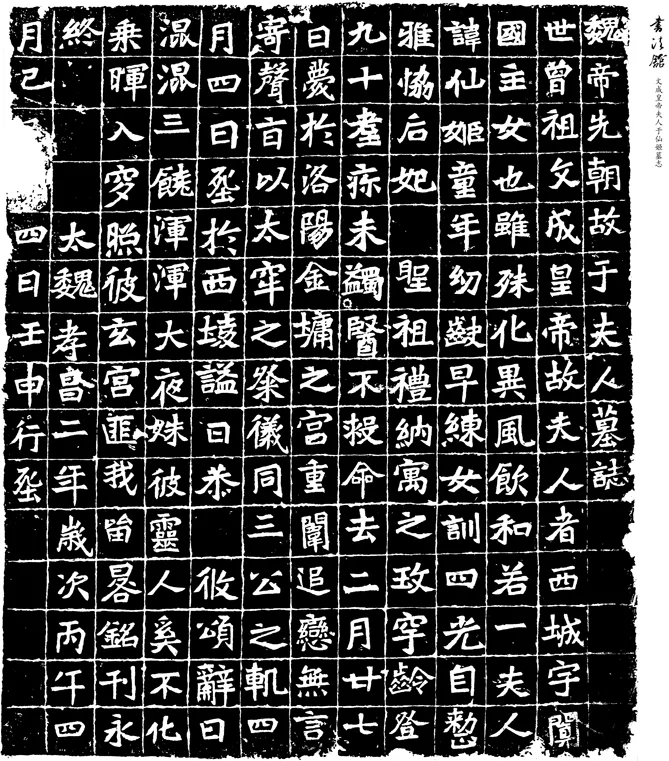 書法館 文成皇帝夫人于仙姬墓志
魏帝先朝故于夫人墓誌
世曾祖文成皇帝故夫人者西城宇闐
國主女也雖殊化異風飲和若一夫人
諱仙姬童年幼齔早練女訓四光自整
雅恊后妃 聖祖禮納寓之玫宇齡登
九十耋疹未蠲醫不救命去二月廿七
日薨於洛陽金墉之宮重闈追戀無言
寄聲旨以太牢之祭儀同三公之軌四
月四日葬於西陵謚曰恭 攸頌辭曰
温温三饒渾渾大夜姝彼靈人奚不化
乘暉入穸照彼玄宮匪我留晷銘刊永
終 太魏孝昌二年歲次丙午四
月己 四日壬申行葬